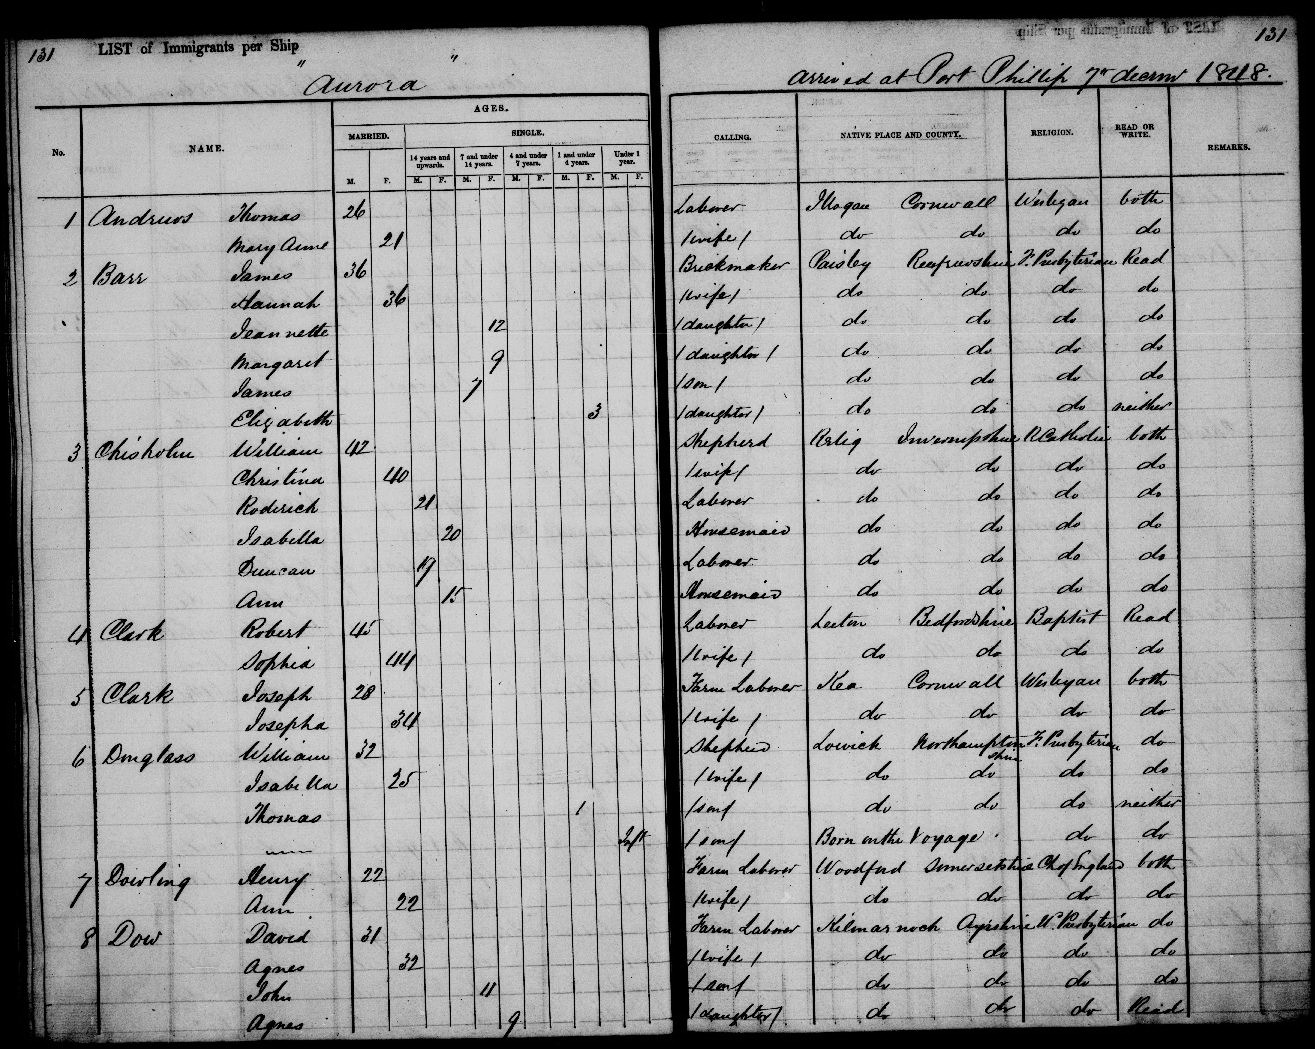 131 LIST of Immigrants per Ship
"Aurora" arrived at Port Phillip 7" decem 1848. 131
No. NAME. AGES. CALLING. NATIVE PLACE AND COUNTY. RELIGION. READ OR WRITE. REMARKS.
MARRIED. SINGLE.
14 years and upwards. 7 and under 14 years. 4 and under 7 years. 1 and under 4 years. Under 1 year.
M. F. M. F. M. F. M. F. M. F. M. F.
1 Andrews Thomas 26 Laborer Illogan Cornwall Wesleyan both
Mary Anne 21 /wife/ do do do do
2 Barr James 36 Brickmaker Paisley Renfrewshire F. Presbyterian Read
Hannah 36 /wife/ do do do do
Jeannette 12 /daughter/ do do do do
Margaret 9 /daughter/ do do do do
James 7 /son/ do do do do
Elizabeth 3 /daughter/ do do do neither
3 Chisholm William 42 Shepherd Invernesshire R Catholic both
Christina 40 /wife/ do do do do
Roderick 21 Laborer do do do do
Isabella 20 Housemaid do do do do
Duncan 19 Laborer do do do do
Ann 15 Housemaid do do do do
4 Clark Robert 45 Laborer Bedfordshire Baptist Read
Sophia 44 /wife/ do do do do
5 Clark Joseph 28 Farm Laborer Kea Cornwall Wesleyan both
Josepha 34 /wife/ do do do do
6 Douglass William 32 Shepherd Lowick Northamptonshire F. Presbyterian do
Isabella 25 /wife/ do do do do
Thomas 1 /son/ do do do neither
Inft /son/ Born on the Voyage do do
7 Dowling Henry 22 Farm Laborer Woodford Somersetshire Ch of England both
Ann 22 /wife/ do do do do
8 Dow David 31 Farm Laborer Kilmarnock Ayrshire Presbyterian do
Agnes 32 /wife/ do do do do
John 11 /son/ do do do do
Agnes 9 /daughter/ do do do Read